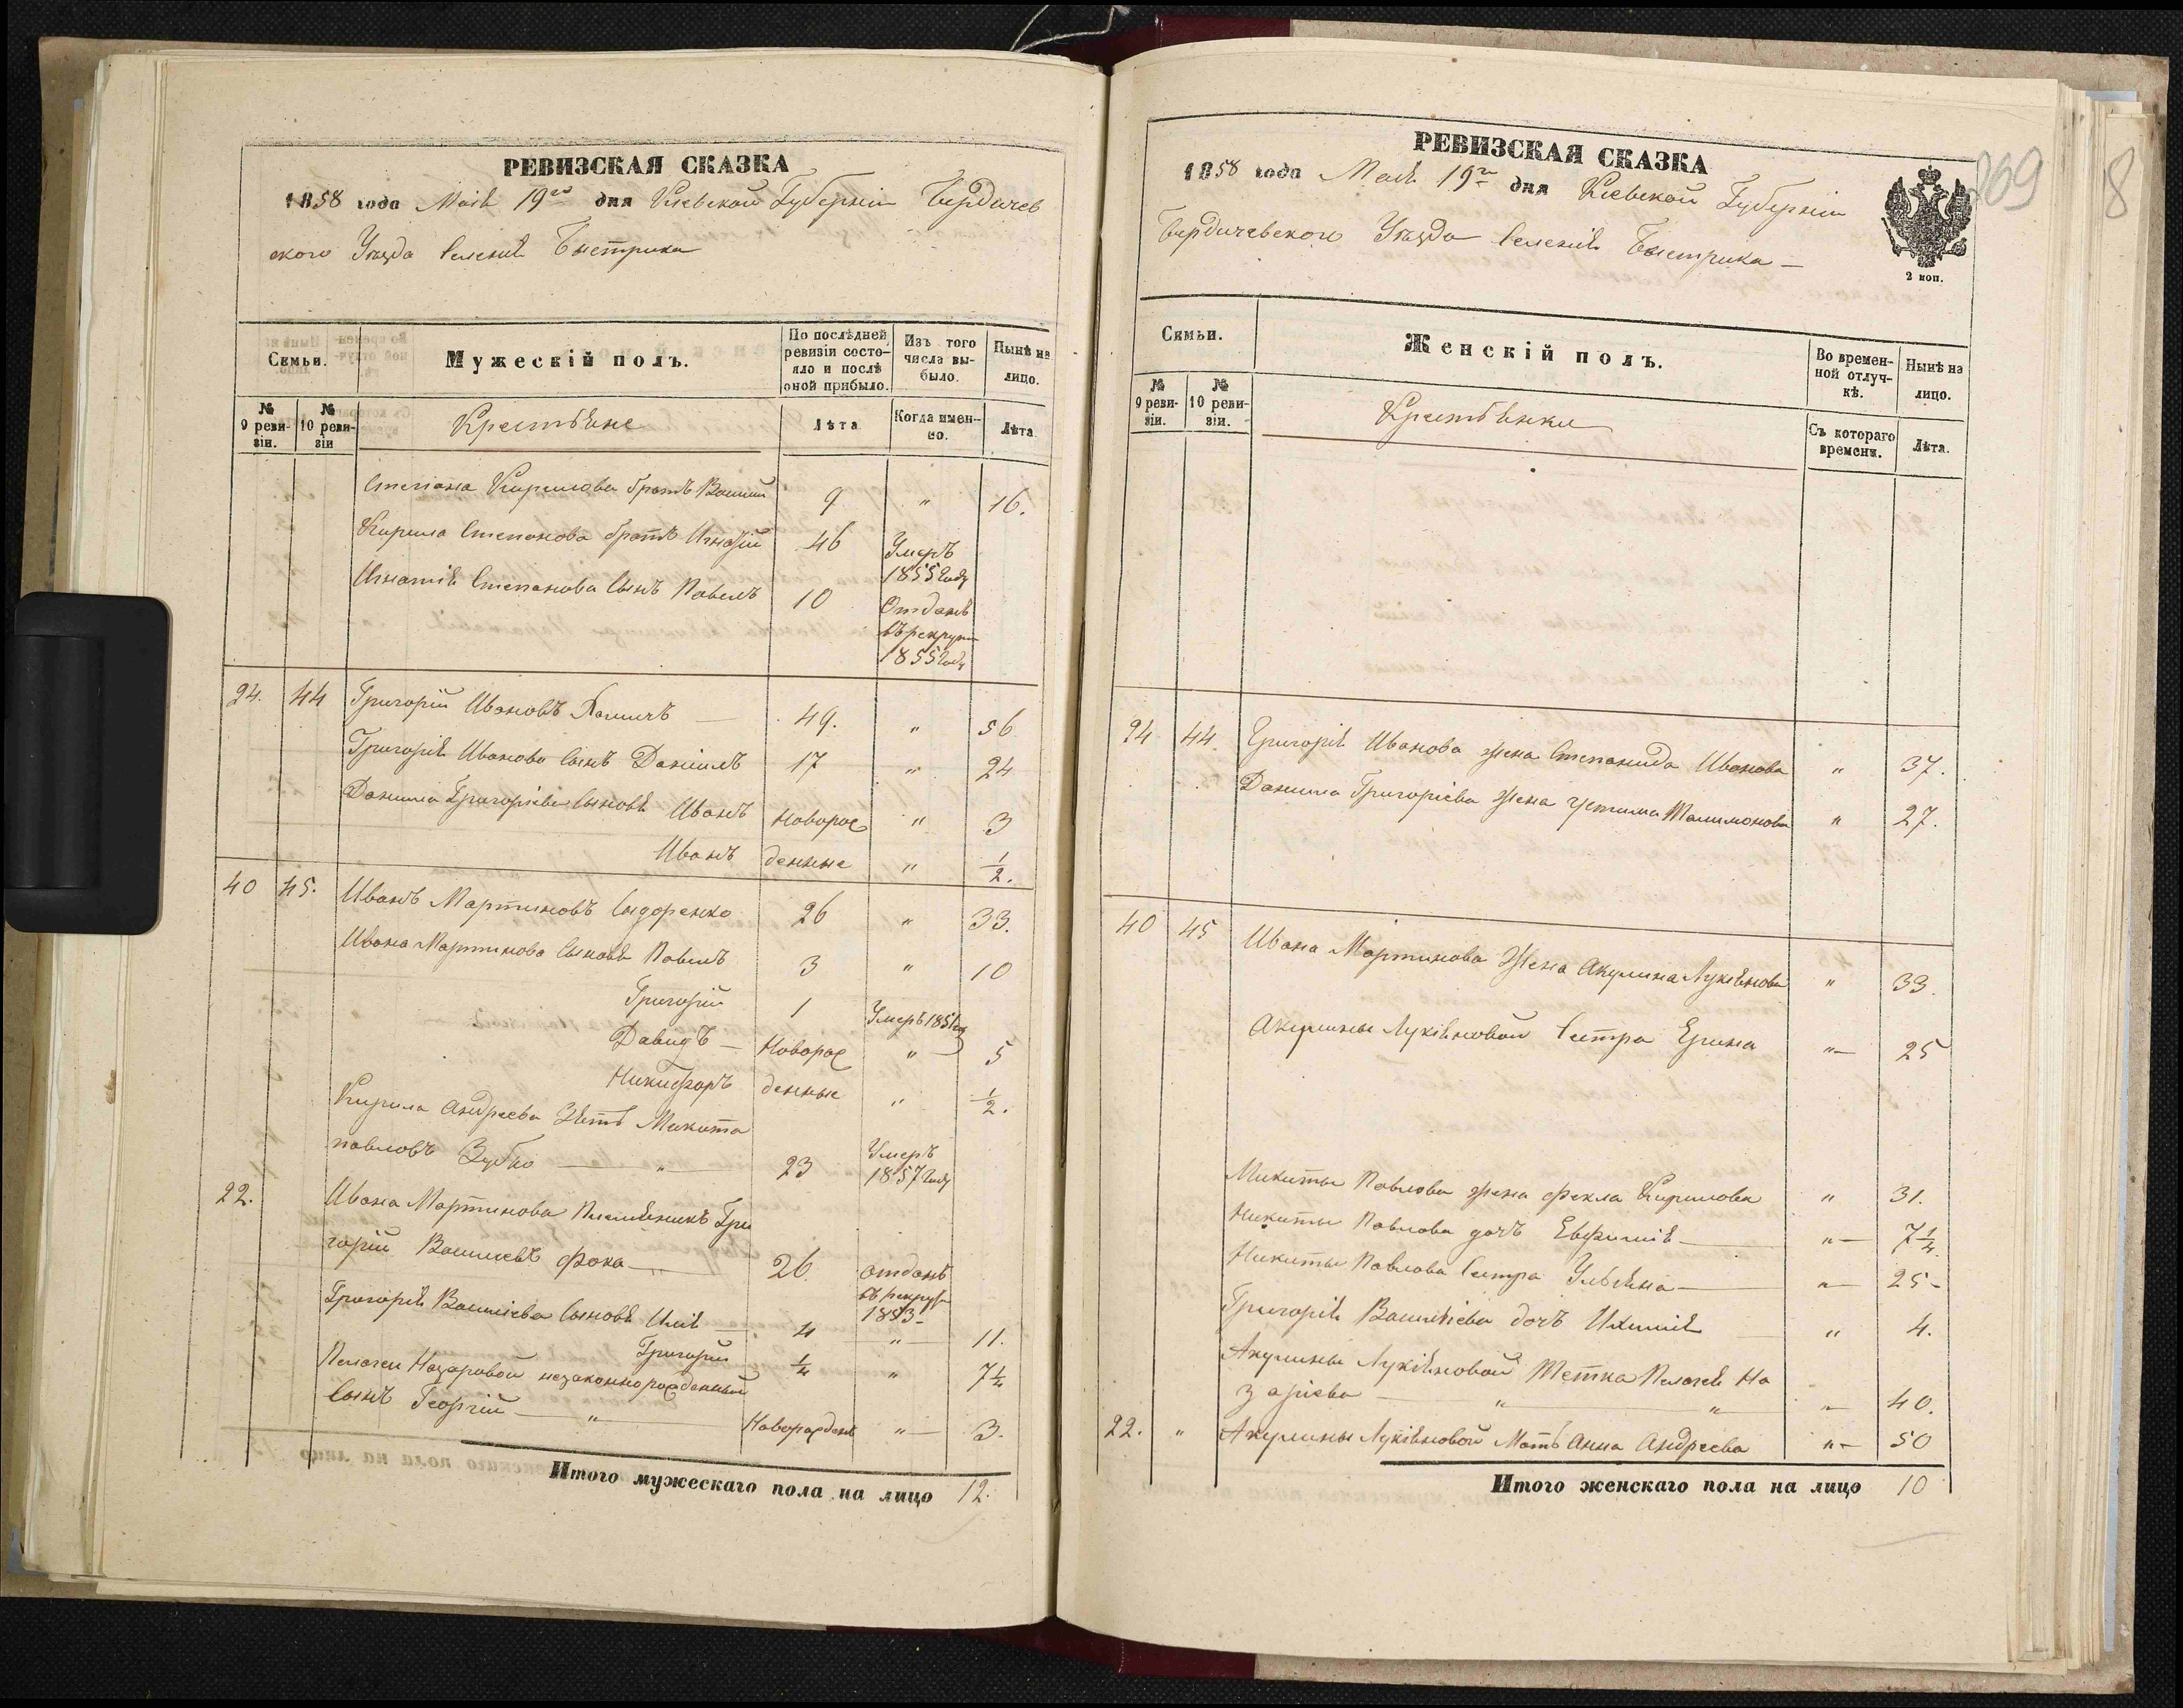 РЕВИЗСКАЯ СКАЗКА
1858 года Маія 19го дня Кіевской Губерніи Бердичев
ского Уѣзда Селенія Быстрика
Семьи.
Мужескій полъ.
По послѣдней ревизіи состояло и послѣ оной прибыло.
Изъ того числа выбыло.
Нынѣ на лицо.
№ 9 ревизіи.
№ 10 ревизіи
Крестьяне
Лѣта
Когда именно.
Лѣта.
Степана Кирилова братъ Василий 9 " 16.
Кирила Степанова братъ Игнатій 46 Умеръ 1855 году
Игнатія Степанова Сынъ Павелъ 10 Отданъ въ рекруты 1855 году
24. 44 Григорій Ивановъ — 49. " 56
Григорія Иванова Сынъ Даніилъ 17 " 24
Данила Григоріева Сыновья Иванъ Новорож " 3
Иванъ денные " 1/2.
40 45. Иванъ Мартиновъ Сидоренко 26 " 33.
Ивана Мартинова Сыновья Павелъ 3 " 10
Григорій 1 Умеръ 1851 го
Давидъ — Новорож " — 5
Никифоръ денные " 1/2.
Кирила Андреева Зять Микита
павловъ Зубко — " — 23 Умеръ 1857 году
22. Ивана Мартинова Племяникъ Гри
горій Василіевъ Фока — " — 26. отданъ въ рекрут 1853 —
Григорія Василіева Сыновья Илія — 4 " 11.
Григорій 1/4 " 7 1/4
Пелагеи Назаровой незаконнорожденный
Сынъ Георгій — " — Новорожденъ " — 3.
Итого мужескаго пола на лицо 12.
РЕВИЗСКАЯ СКАЗКА
1858 года Маія 19го дня Кіевской Губерніи
Бердичевского Уѣзда Селенія Быстрика —
2 коп.
869
8
Семьи.
Женскій полъ.
Во временной отлучкѣ.
Нынѣ на лицо.
№ 9 ревизіи.
№ 10 ревизіи.
Крестьянки
Съ котораго времени.
Лѣта.
24 44. Григорія Иванова жена Степанида Иванова " 37.
Данила Григоріева жена Устима Малимонова " 27.
40 45 Ивана Мартинова Жена Акулина Лукіянова " 33.
Акулины Лукіяновой Сестра Ерина " — 25
Микиты Павлова жена Фекла Кирилова " 31.
Никиты Павлова дочь Евфимія — " — 7 1/4.
Никиты Павлова Сестра Ульяна — " — 25 —
Григорія Василіева дочь " 4.
Акулины Лукіяновой Тетка Пелагея На
заріева — " — " — 40.
22. " Акулины Лукіяновой Мать Анна Андреева " — 50
Итого женскаго пола на лицо 10